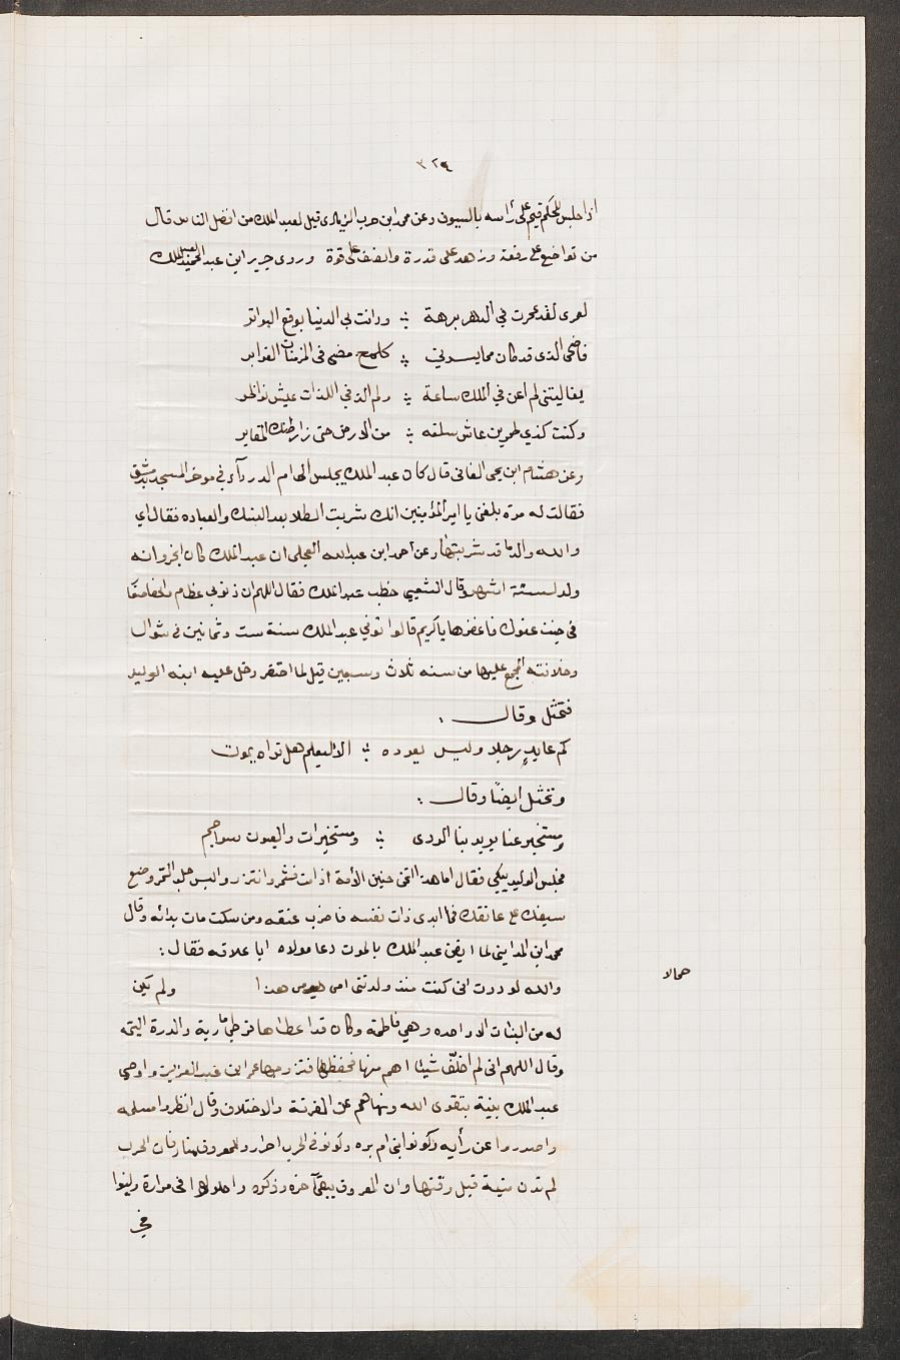 ٣٢٤
اذا جلس للحكم قيم على رأسه بالسيوف وعن محمد ابن حرب الزيادى قيل لعبد الملك من افضل الناس قال
من تواضع على رفعة وزهد على قدرة وانصف على قوة وروى جرير ابن عبد الحميد لعبد الملك
لعمرى لقد عمرت في الدهر برهة ؞ ودانت لي الدنيا بوقع البواتر
فاضحى الذى قد كان مما يسرني ؞ كلمح مضى في المزمنات الغوابر
فيا ليتنى لم اعن في الملك ساعة ؞ ولم اله في اللذات عيش نواظر
وكنت كذي طمرين عاش ببلغه ؞ من الارض حتى زار ضنك المقابر
وعن هشام ابن يحى الغانى قال كان عبد الملك يجلس الى ام الدردآء في موخر المسجد بدمشق
فقالت له مرة بلغنى يا امير المؤمنين انك شربت الطلا بعد النسك والعباده فقال اي
والله والدما قد شربتها وعن احمد ابن عبدالله العجلى ان عبد الملك كان ابخر وانه
ولد لستة اشهر وقال الشعبي خطب عبد الملك فقال اللهم ان ذنوبي عظام
في جنب عفوك فاغفرها يا كريم قالوا توفي عبد الملك سنة ست وثمانين في شوال
وخلافته المجمع عليها من سنه ثلاث وسبعين قيل لما احتضر دخل عليه ابنه الوليد
فتمثل وقال :
كم عايدٍ رجلا وليس يعوده ؞ الا ليعلم هل تراه يموت
وتمثل ايضًا وقال :
ومستخبر عنا يريد بنا الردى ؞ ومستخبرات والعيون سواجم
فجلس الوليد يبكي فقال اما هذا اتحن حنين الأمة اذا مت فشمر وائتزر والبس جلد النمر وضع
سيفك على عاتقك فمن ابدى ذات نفسه فاضرب عنقه ومن سكت مات بدائه وقال
محمد ابن المداينى لما ايقن عبد الملك بالموت دعا مولاه ابا علاقه فقال :
والله لوددت انى كنت منذ ولدتنى امى الى يومى هذا ولم تكن
حمالا
له من البنات الا واحده وهي فاطمه وكان قد اعطاها قرطي مارية والدرة اليتيمه
وقال اللهم انى لم اخلّف شيئا اهم منها فحفظها فتزوجها عمر ابن عبد العزيز واوصى
عبد الملك بنيه بتقوى الله ونهاهم عن الفرقة والاختلاف وقال انظروا مسلمه
واصدروا عن رأيه وكونوا بنى ام بره وكونو في الحرب احرار وللمعروف منارا فان الحرب
لم تدن منية قبل وقتها وان المعروف يبقى آجره وذكره واحلولوا فى مرارة ولينوا
في